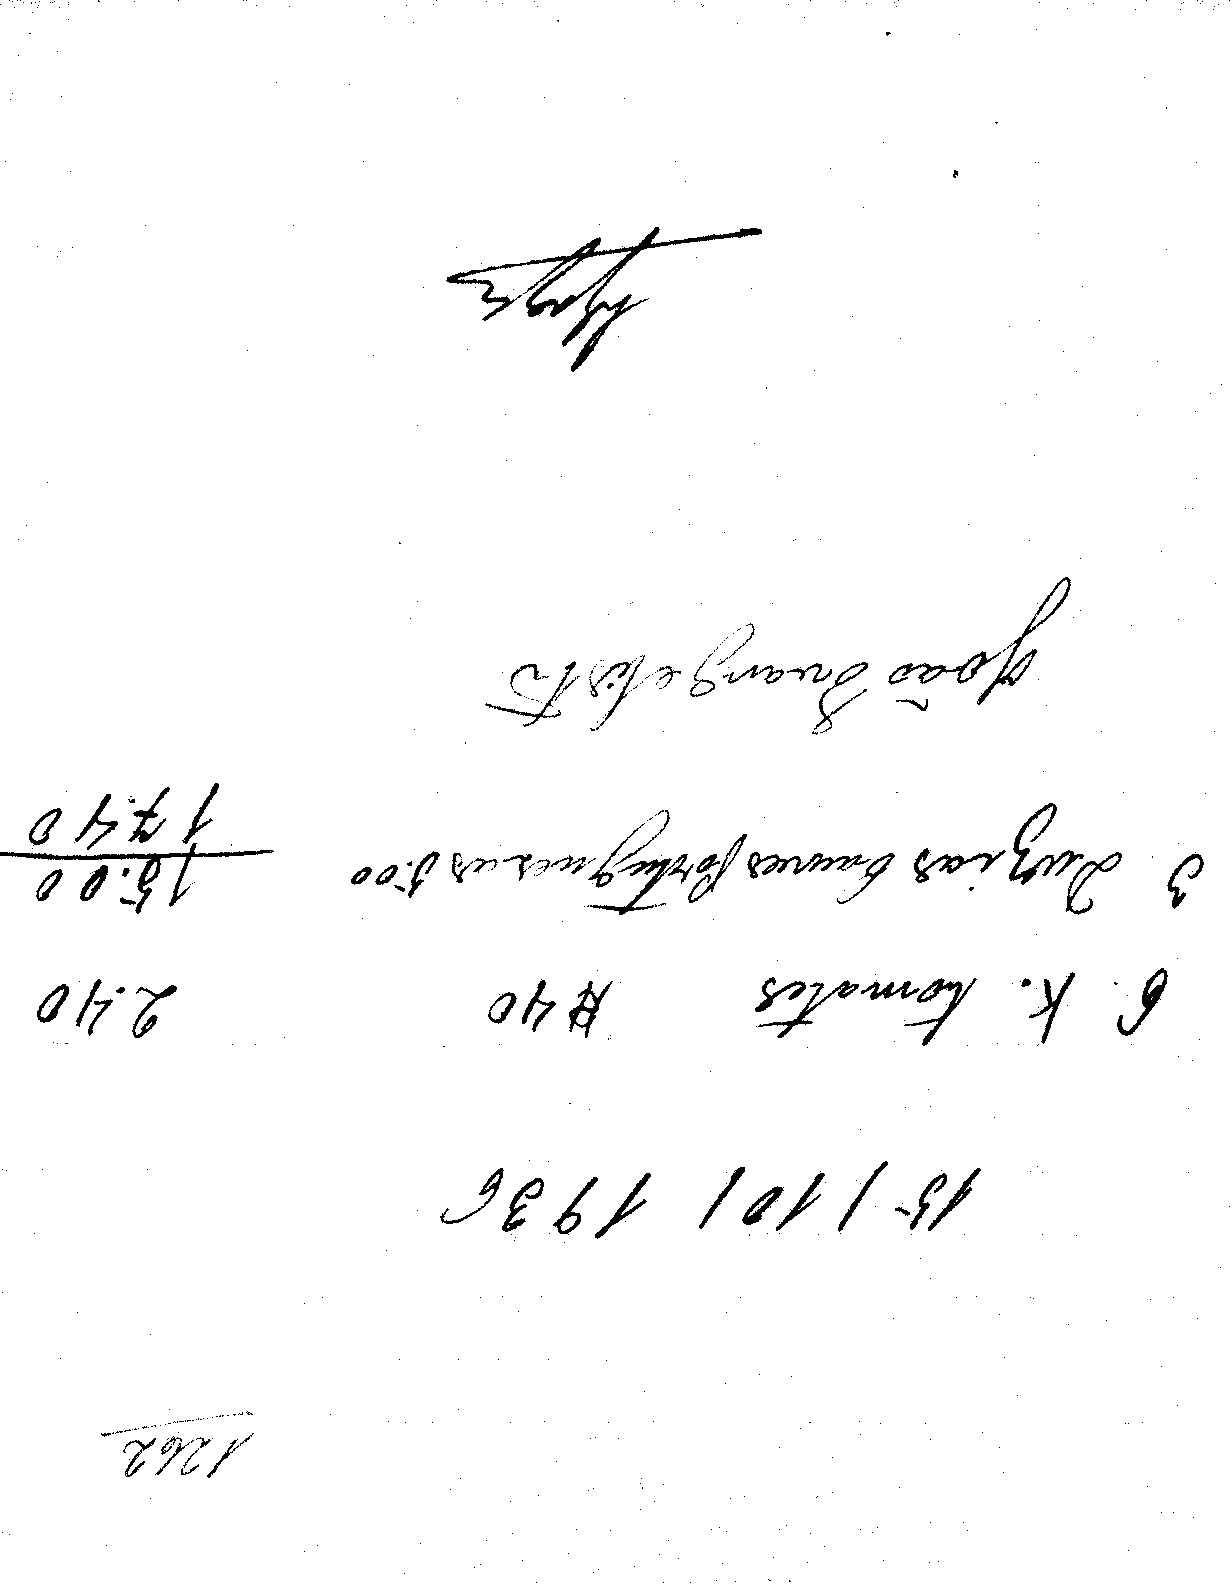 1262
15 / 10 / 1936
6. K. tomates $40 2.40
3 duzias couves portuguesas 5.00 15.00
17.40
João Evangelista